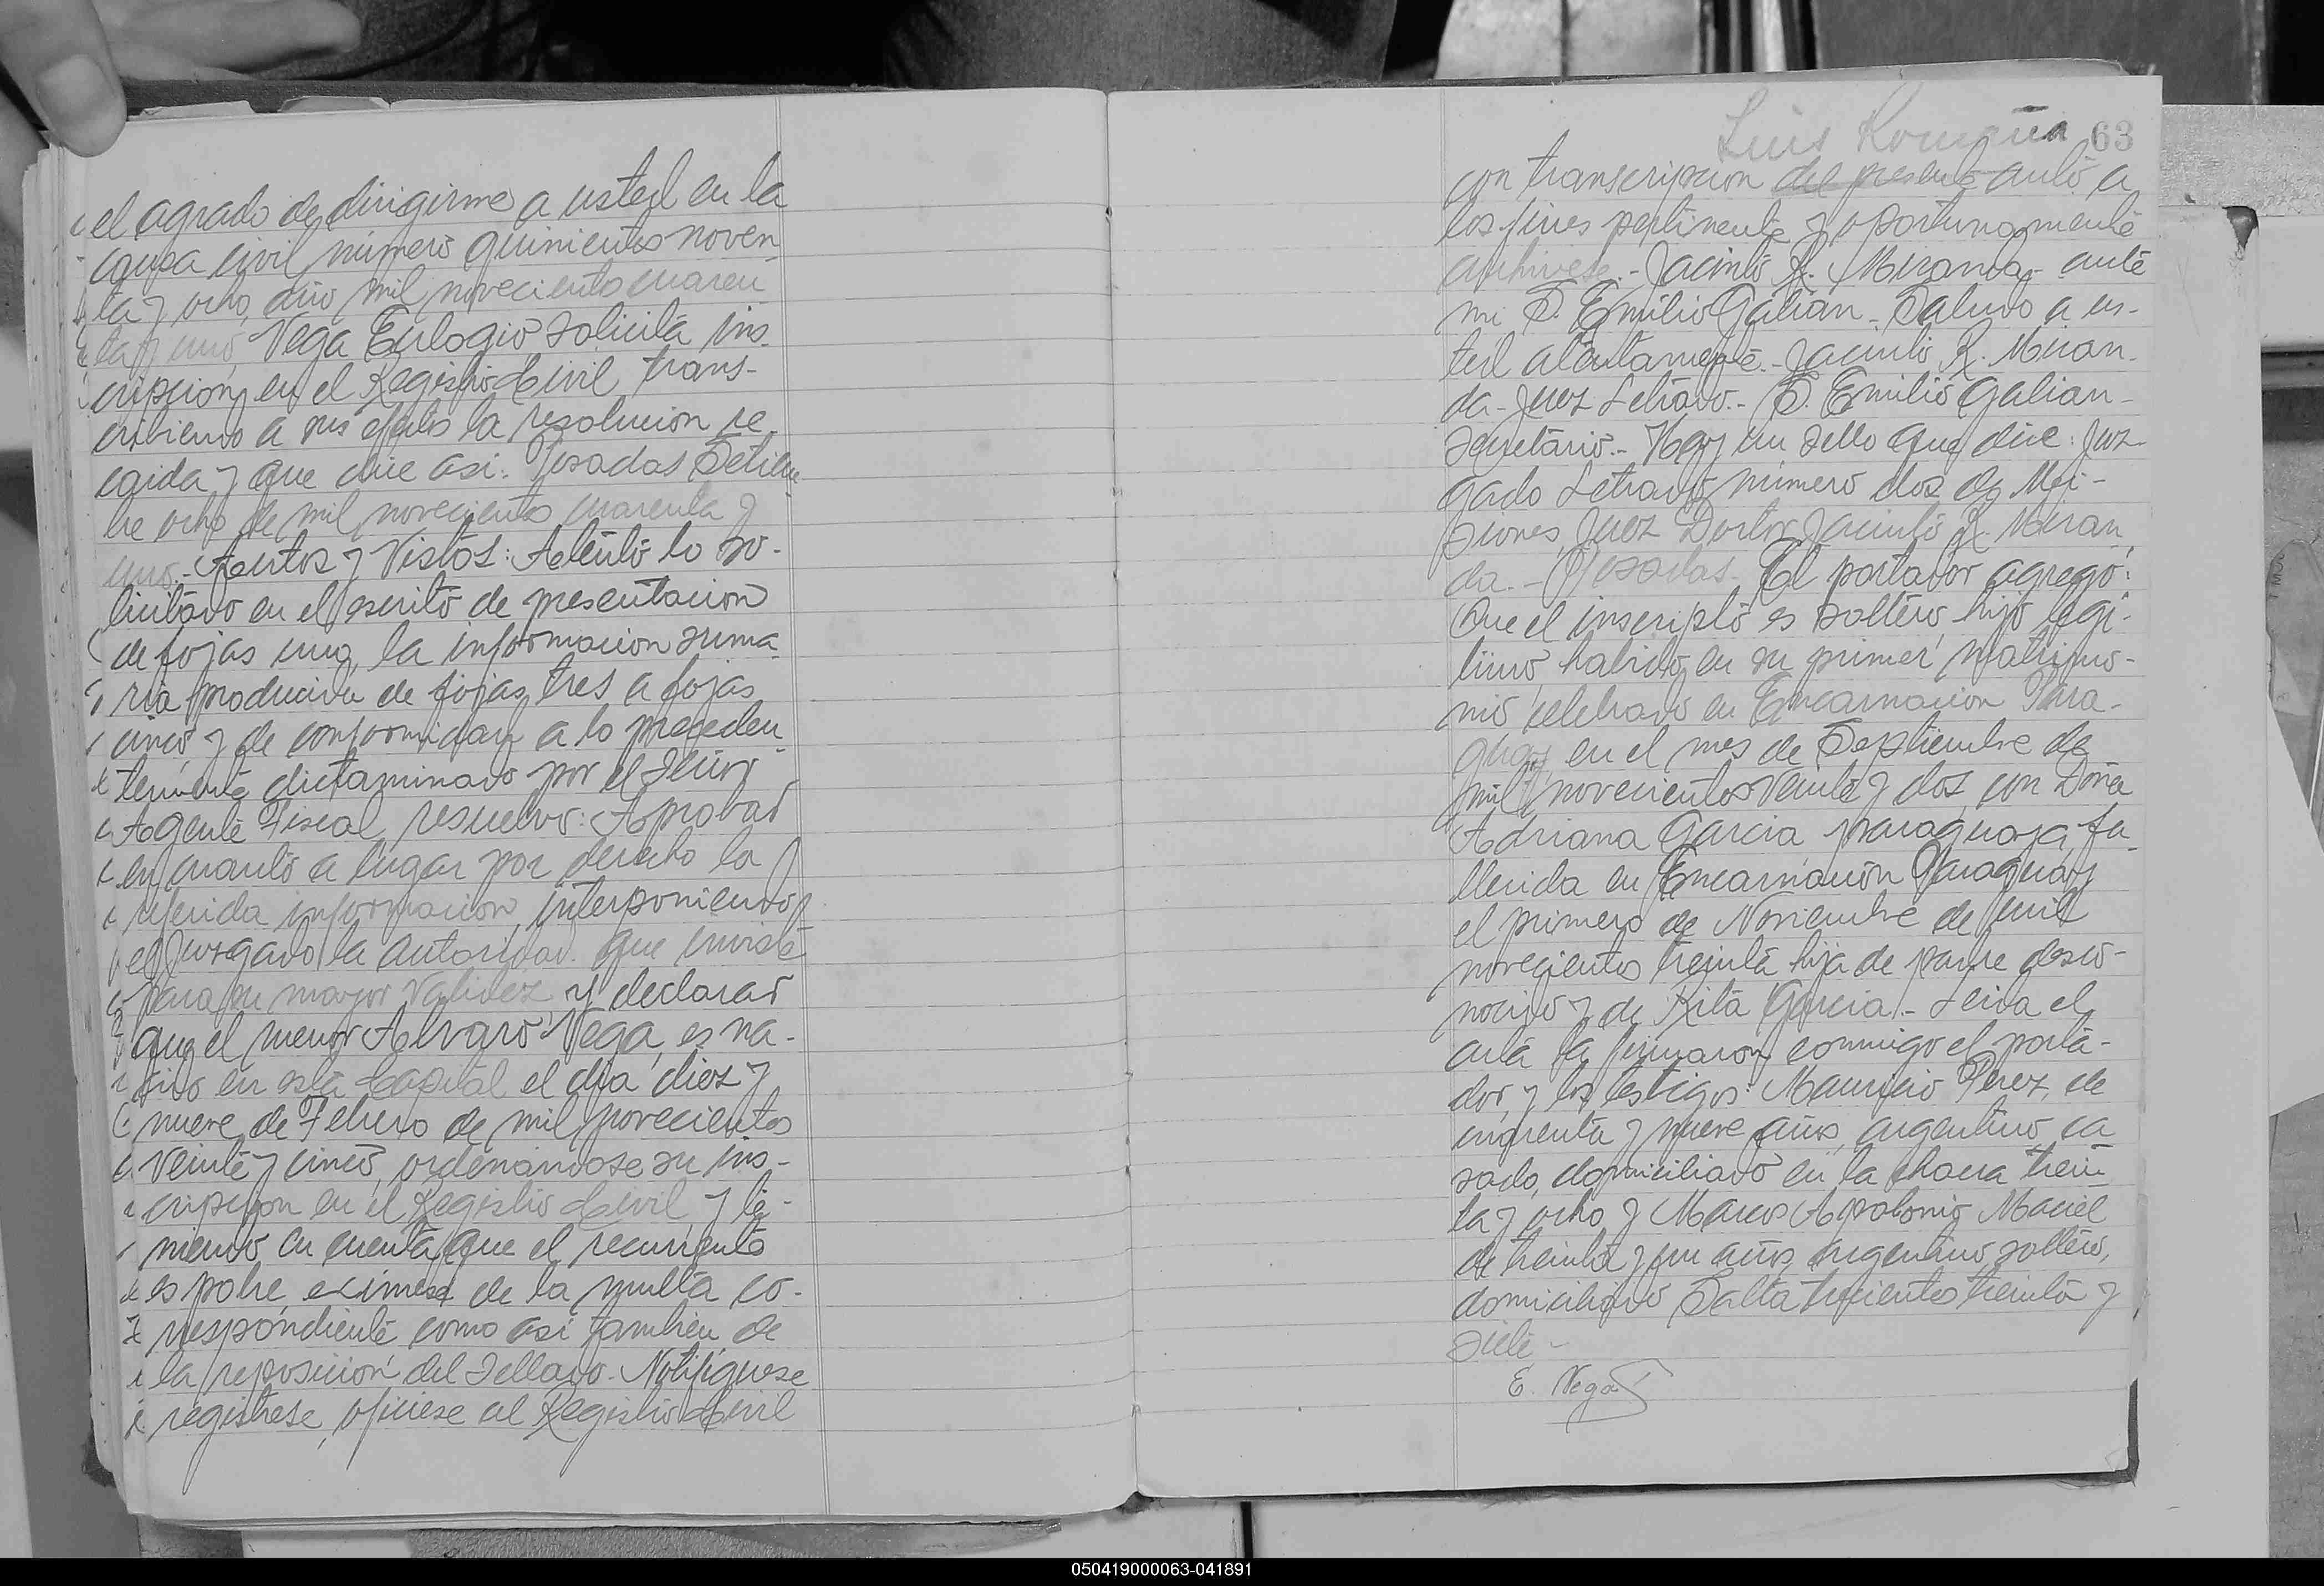 el agrado de dirigirme a usted en la
causa civil número quinientos noven
ta y ocho, año mil novecientos cuaren
ta y uno, Vega Eulogio, solicita ins-
cripcion en el Registro Civil, trans-
cribiendo a sus efectos la resolucion re
caida y que dice asi: Posadas Setiem
bre ocho de mil novecientos cuarenta y
uno.- Autos y Vistos: Atento lo so-
licitado en el escrito de presentacion
de fojas una, la informacion suma
ria producida de fojas tres a fojas
cinco y de conformidad a lo preceden
temente dictaminado por el señor
Agente Fiscal, resuelvo: Aprobar
en cuanto a lugar por derecho la
referida informacion, interponiendo
el Juzgado la autoridad que inviste
para su mayor validez y declarar
que el menor Alvaro Vega, es na-
cido en esta Capital el dia diez y
nueve de Febrero de mil novecientos
veinte y cinco, ordenandose su ins-
cripcion en el Registro Civil, y te-
niendo en cuenta que el recurrente
es pobre, eximese de la multa co-
rrespondiente como asi tambien de
la reposición del sellado. Notifiquese
registrese, oficiese al Registro Civil
Luis Romaña 63
con transcripcion del presente auto a
los fines pertinente y oportunamente
archivese.- Jacinto R. Miranda- ante
mi S. Emilio Galian- Saludo a us-
ted atentamente.- Jacinto R. Miran-
da- Juez Letrado.- S. Emilio Galian-
Secretario.- Hay un sello que dice: Juz-
gado Letrado número dos de Mi-
siones, Juez Doctor Jacinto R. Miran
da.- Posadas- El portador agregó:
Que el inscripto es soltero, hijo legi-
timo, habido en su primer matrimo-
nio celebrado en Encarnacion Para-
guay, en el mes de Septiembre de
mil novecientos veinte y dos, con Doña
Adriana Garcia paraguaya, fa-
llecida en Encarnación Paraguay
el primero de Noviembre de mil
novecientos treinta hija de padre desco-
nocido y de Rita Garcia.- Leida el
acta la firmaron conmigo el porta-
dor, y los testigos: Mauricio Perez, de
cuarenta y nueve años, argentino, ca
sado, domiciliado en la chacra trein
ta y ocho y Marcos Apolonio Maciel
de treinta y un años, argentino, soltero,
domiciliado Salta trecientos treinta y
siete-
E. Vega
050419000063-041891